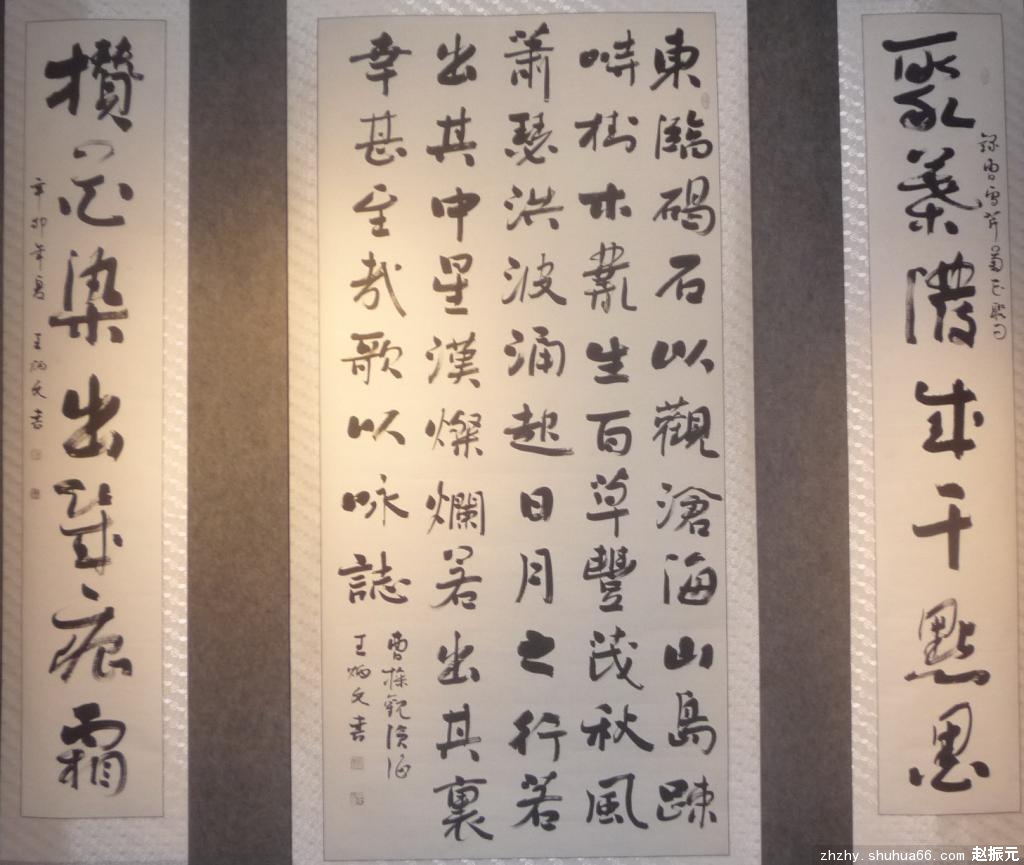 聚葉潑成千點墨
録曹雪芹菊花聯句
東臨碣石以觀滄海山島踈
峙樹木叢生百草豐茂秋風
蕭瑟洪波涌起日月之行若
出其中星漢燦爛若出其裏
幸甚至哉歌以咏誌
曹操觀滄海
王炳文書
攢花染出幾痕霜
辛卯年夏 王炳文書
zhzhy.shuhua66.com 赵振元